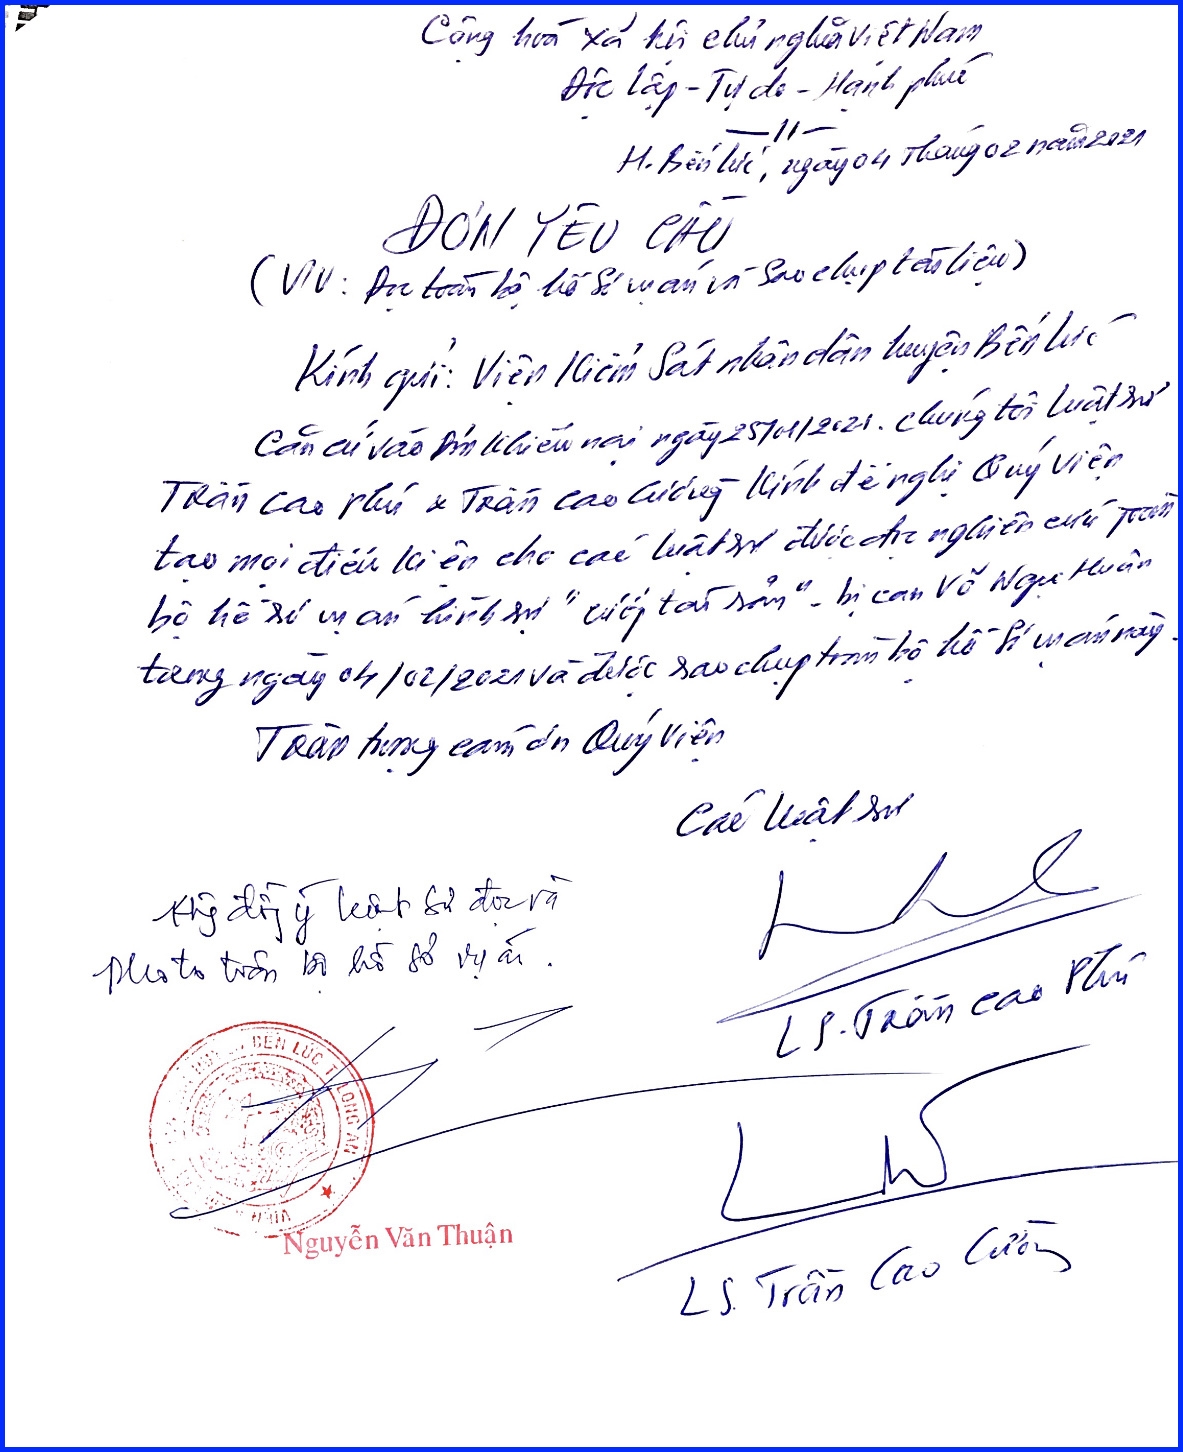 Cộng hoà xã hội chủ nghĩa Việt Nam
Độc lập - Tự do - Hạnh phúc
H. Bến Lức, ngày 04 tháng 02 năm 2021
ĐƠN YÊU CẦU
(V/V: Đọc toàn bộ hồ sơ vụ án và sao chụp tài liệu)
Kính gửi: Viện Kiểm Sát nhân dân huyện Bến Lức
Căn cứ vào Đơn Khiếu nại ngày 25/01/2021. chúng tôi Luật sư
Trần Cao Phú & Trần Cao Cường Kính đề nghị Quý Viện
tạo mọi điều Kiện cho các luật sư được đọc nghiên cứu toàn
bộ hồ sơ vụ án hình sự "cướp tài sản" - bị can Võ Ngọc Huân
trong ngày 04/02/2021 và được sao chụp toàn bộ hồ sơ vụ án này.
Trân trọng cám ơn Quý Viện
Các luật sư
Không đồng ý luật sư đọc và
photo toàn bộ hồ sơ vụ án.
LS. Trần Cao Phú
BẾN LỨC T. LONG AN
Nguyễn Văn Thuận
LS. Trần Cao Cường